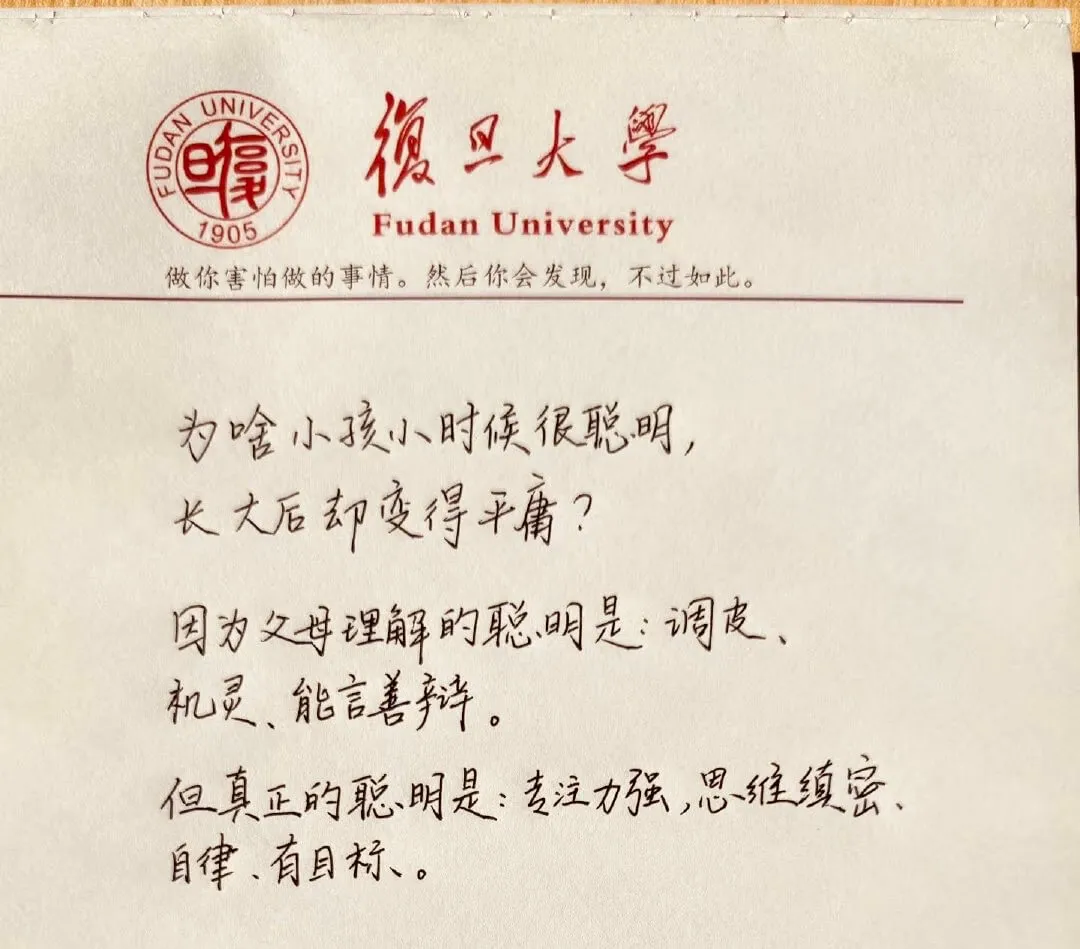 FUDAN UNIVERSITY
旦復
1905
復旦大學
Fudan University
做你害怕做的事情。然后你会发现，不过如此。
为啥小孩小时候很聪明，
长大后却变得平庸？
因为父母理解的聪明是：调皮、
机灵、能言善辩。
但真正的聪明是：专注力强，思维缜密、
自律、有目标、。